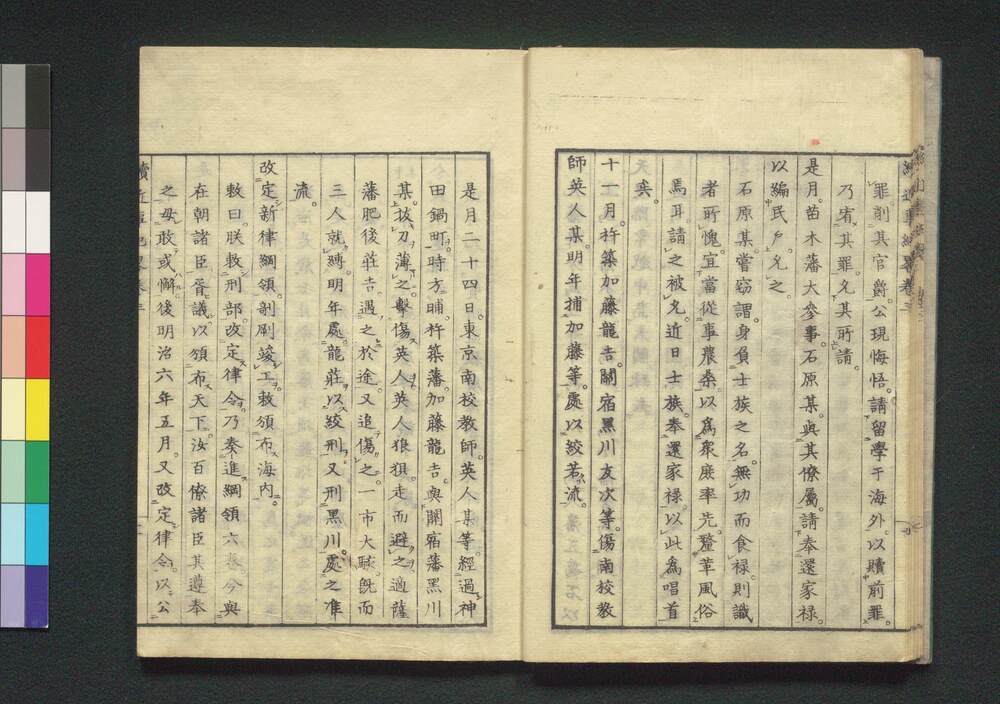 罪削其官爵。公現悔悟。請留學于海外。以贖前罪。
乃宥其罪。允其所請。
是月。苗木藩大參事。石原某與其僚屬。請奉還家祿。
以編民戶。允之。
石原某嘗竊謂。身負士族之名。無功而食祿。則識
者所愧。宜當從事農桑。以爲衆庶率先。釐革風俗
焉耳。請之被允。近日士族。奉還家祿。以此爲唱首
矣。
十一月。杵築加藤龍吉。關宿黑川友次等。傷南校教
師英人某。明年捕加藤等。處以絞若流。
是月二十四日。東京南校教師。英人某等。經過神
田鍋町。時方晡。杵築藩加藤龍吉。與關宿藩黑川
某。拔刀薄之。擊傷英人。英人狼狽。走而避之。適薩
藩肥後莊吉。遇之於途。又追傷之。一市大駭。既而
三人就縛。明年處龍莊以絞刑。又刑黑川。處之准
流。
改定新律綱領。剞劂竣工。敕頒布海内。
敕曰。朕敕刑部。改定律令。乃奏進綱領六卷。今與
在朝諸臣胥議。以頒布天下。汝百僚諸臣其遵奉
之。毋敢或懈。後明治六年五月。又改定律令。以公